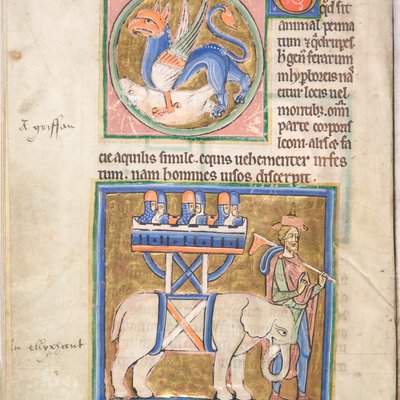 qd sit
animal penna
tum & qdrupes
h̄ gen' ferarum
in hyptoreis na
citur locis uel
montibz. om̄i
parte corporis
leoni. alis & fa
cie aquilis simile. equis uehementer infes
tum. nam homines uisos discerpit.
A griffan
an ellyphant